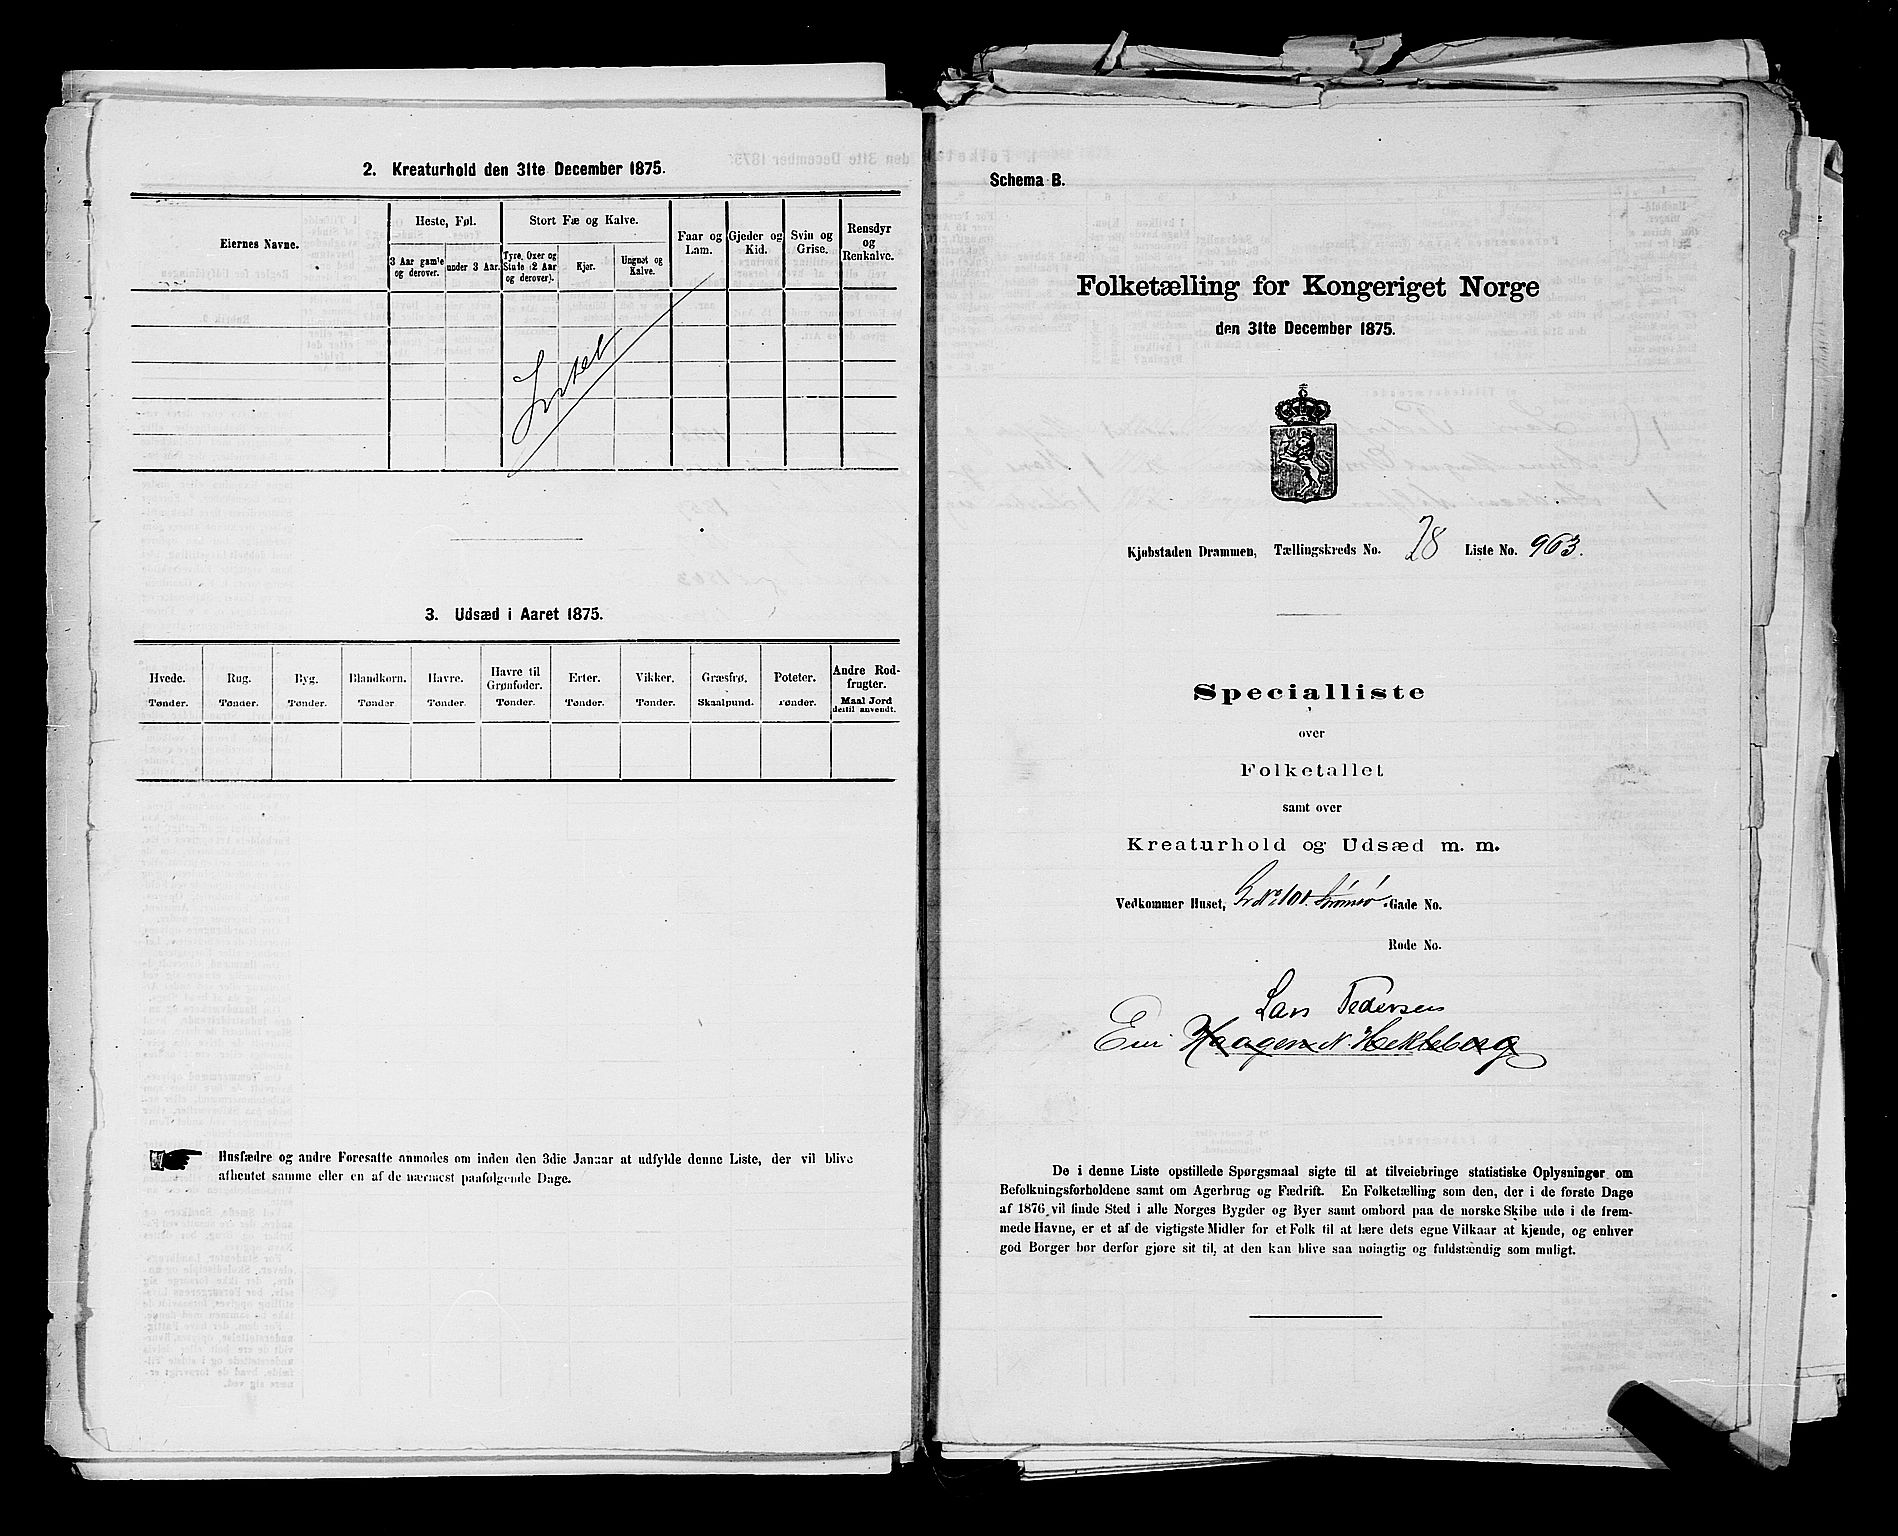 2. Kreaturhold den 31te December 1875.
Eiernes Navne.
Heste, Føl.
Stort Fæ og Kalve.
Faar og Lam.
Gjeder og Kid.
Svin og Grise.
Rensdyr og Renkalve.
3 Aar gamle og derover.
under 3 Aar.
Tyre, Oxer og Stude (2 Aar og derover).
Kjør.
Ungnøt og Kalve.
3. Udsæd i Aaret 1875.
Hvede. Rug. Byg. Blandkorn. Havre. Havre til Grønfoder. Erter. Vikker. Græsfrø. Poteter. Andre Rodfrugter.
Tønder. Tønder. Tønder. Tønder Tønder. Tønder. Tønder. Tønder. Skaalpund. Tønder. Maal Jord dertil anvendt.
Husfædre og andre Foresatte anmodes om inden den 3die Januar at udfylde denne Liste, der vil blive
afhentet samme eller en af de nærmest paafølgende Dage.
Schema B.
Folketælling for Kongeriget Norge
den 31te December 1875.
Kjøbstaden Drammen, Tællingskreds No. 28 Liste No. 963.
Specialliste
over
Folketallet
samt over
Kreaturhold og Udsæd m. m.
Vedkommer Huset, Gr No 101. Strømsø Gade No.
Rode No.
Lars Pedersen
Eier Haagen N. Hekleberg
De i denne Liste opstillede Spørgsmaal sigte til at tilveiebringe statistiske Oplysninger om
Befolkningsforholdene samt om Agerbrug og Fædrift. En Folketælling som den, der i de første Dage
af 1876 vil finde Sted i alle Norges Bygder og Byer samt ombord paa de norske Skibe ude i de frem-
mede Havne, er et af de vigtigste Midler for et Folk til at lære dets egne Vilkaar at kjende, og enhver
god Borger bør derfor gjøre sit til, at den kan blive saa nøiagtig og fuldstændig som muligt.